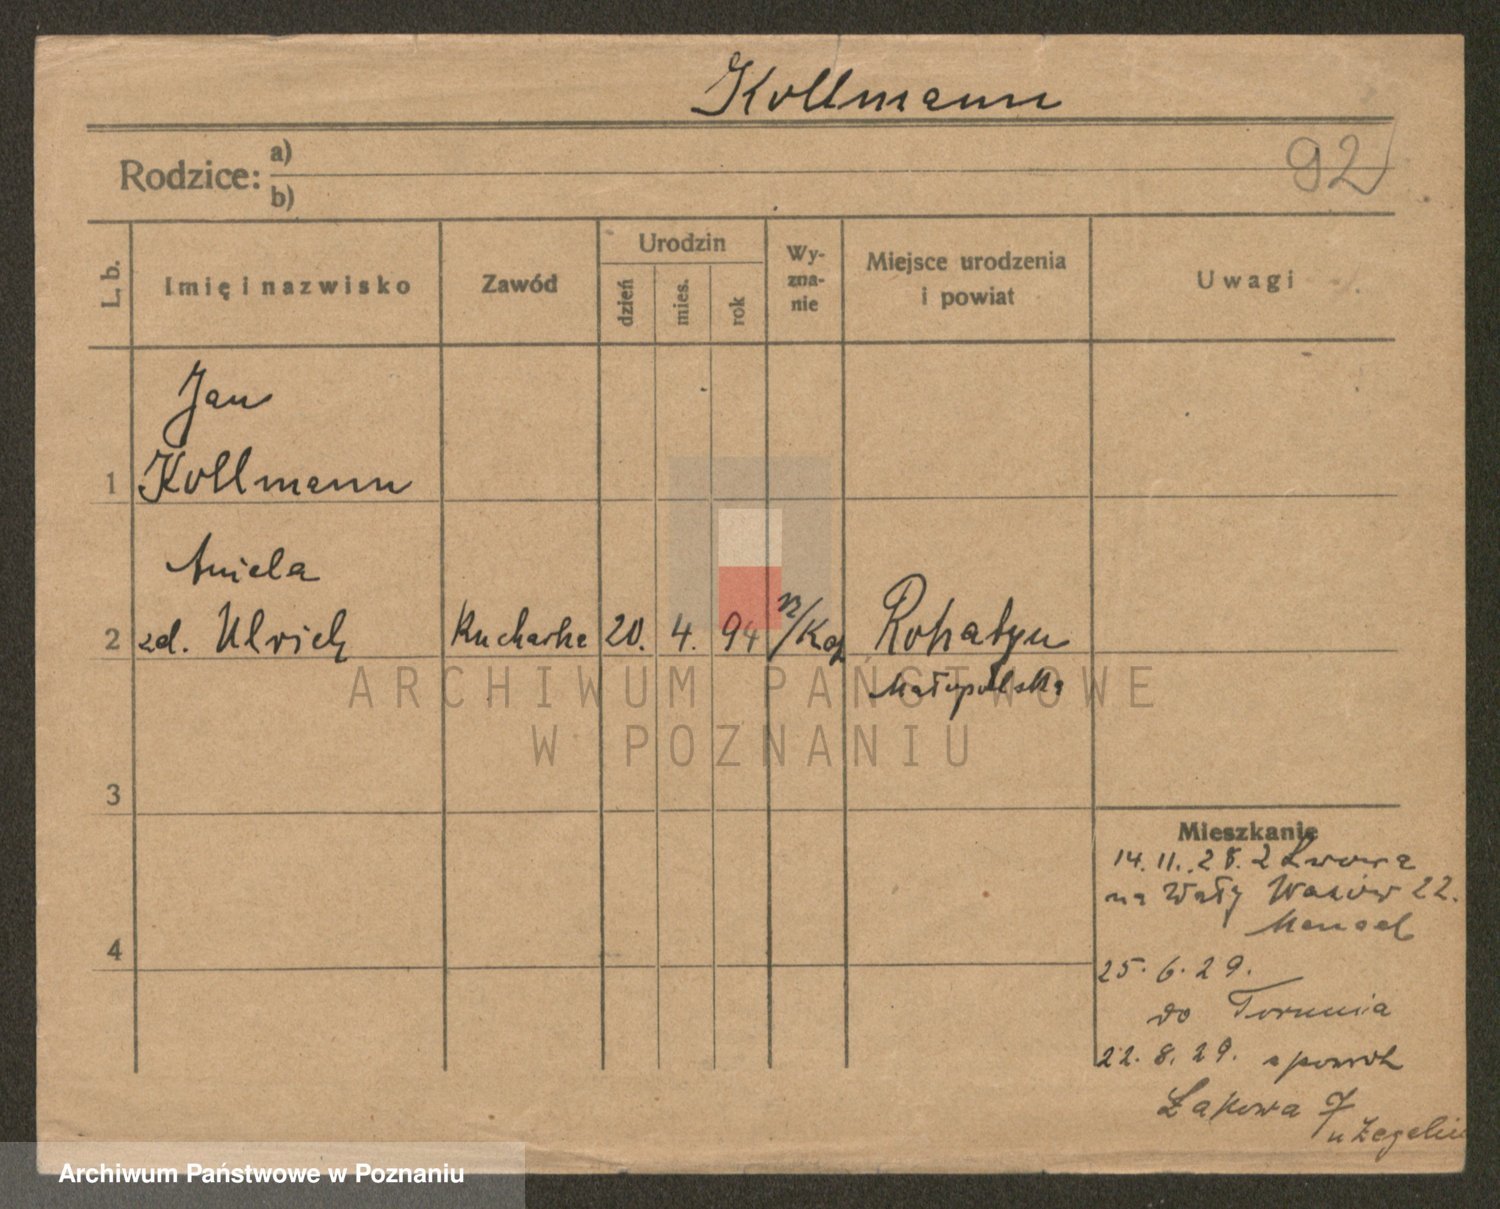 Kollmann
92
Rodzice: a)
b)
L. b.
Imię i nazwisko
Zawód
Urodzin
dzień
mies.
rok
Wy-
zna-
nie
Miejsce urodzenia
i powiat
Uwagi
Jan
1 Kollmann
Aniela
2 zd. Ulrich Kucharka 20. 4. 94 Rohatyn
Małopolska
ARCHIWUM PAŃSTWOWE
W POZNANIU
3
Mieszkanie
14.11.28. z Lwowa
na Wały Wazów 22.
4
25.6.29.
do Torunia
22.8.29. spowrot
Łąkowa 7
Archiwum Państwowe w Poznaniu